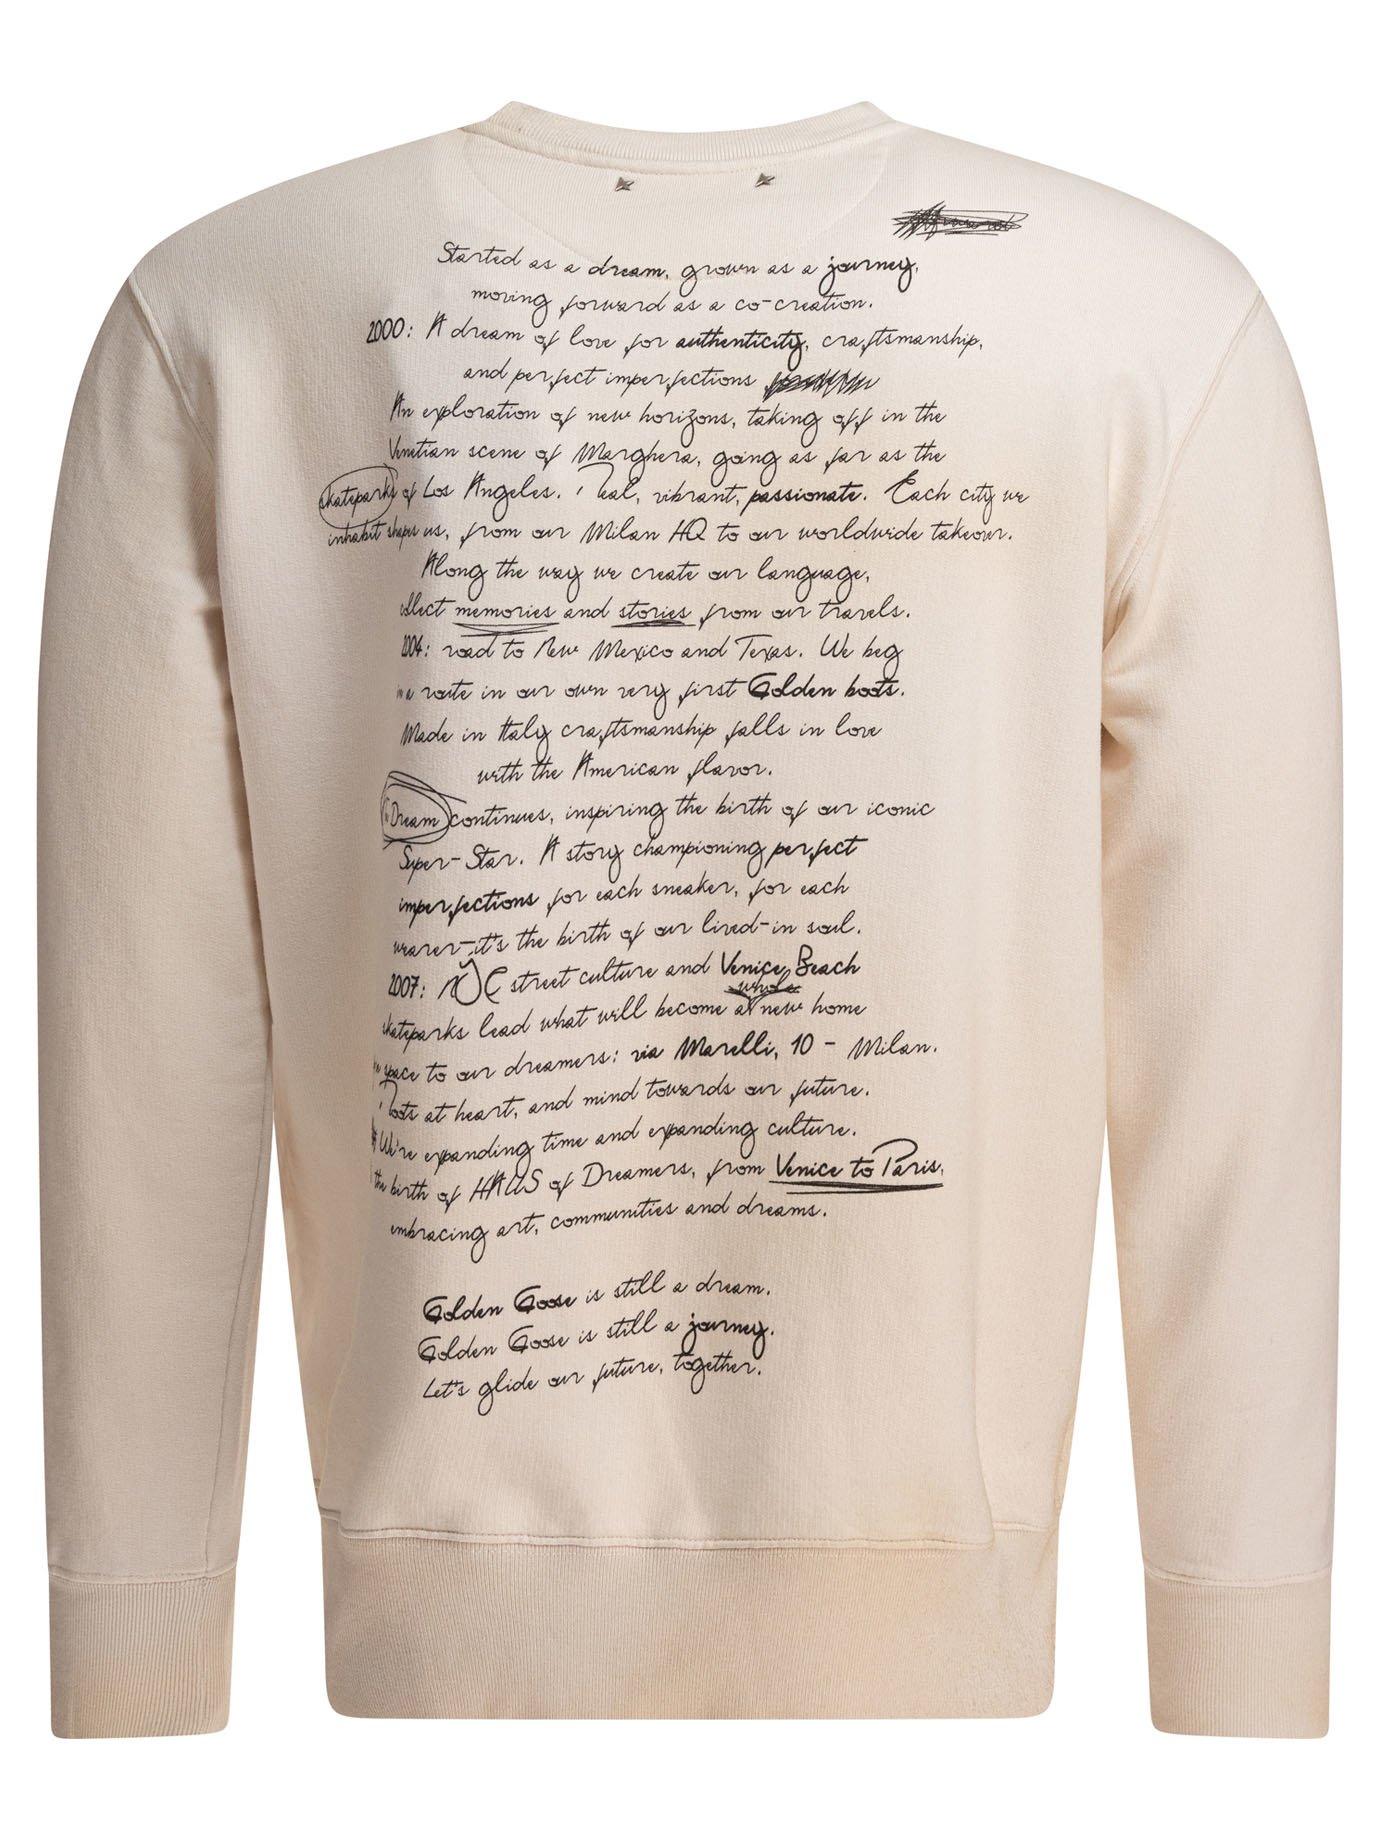 Started as a dream, grown as a journey,
moving forward as a co-creation.
2000: A dream of love for authenticity, craftsmanship,
and perfect imperfections
An exploration of new horizons, taking off in the
Venetian scene of Marghera, going as far as the
skateparks of Los Angeles. Real, vibrant, passionate. Each city we
inhabit shapes us, from our Milan HQ to our worldwide takeover.
Along the way we create our language,
collect memories and stories from our travels.
2004: road to New Mexico and Texas. We beg
route in our own very first Golden boots.
Made in Italy craftsmanship falls in love
with the American flavor.
Dream continues, inspiring the birth of our iconic
Super-Star. A story championing perfect
imperfections for each sneaker, for each
wearer-it's the birth of our lived-in soul.
2007: NYC street culture and Venice Beach
whole
skateparks lead what will become a new home
space to our dreamers: via Marelli, 10 - Milan.
Roots at heart, and mind towards our future.
We're expanding time and expanding culture.
the birth of HAUS of Dreamers, from Venice to Paris,
embracing art, communities and dreams.
Golden Goose is still a dream.
Golden Goose is still a journey.
Let's glide our future, together.